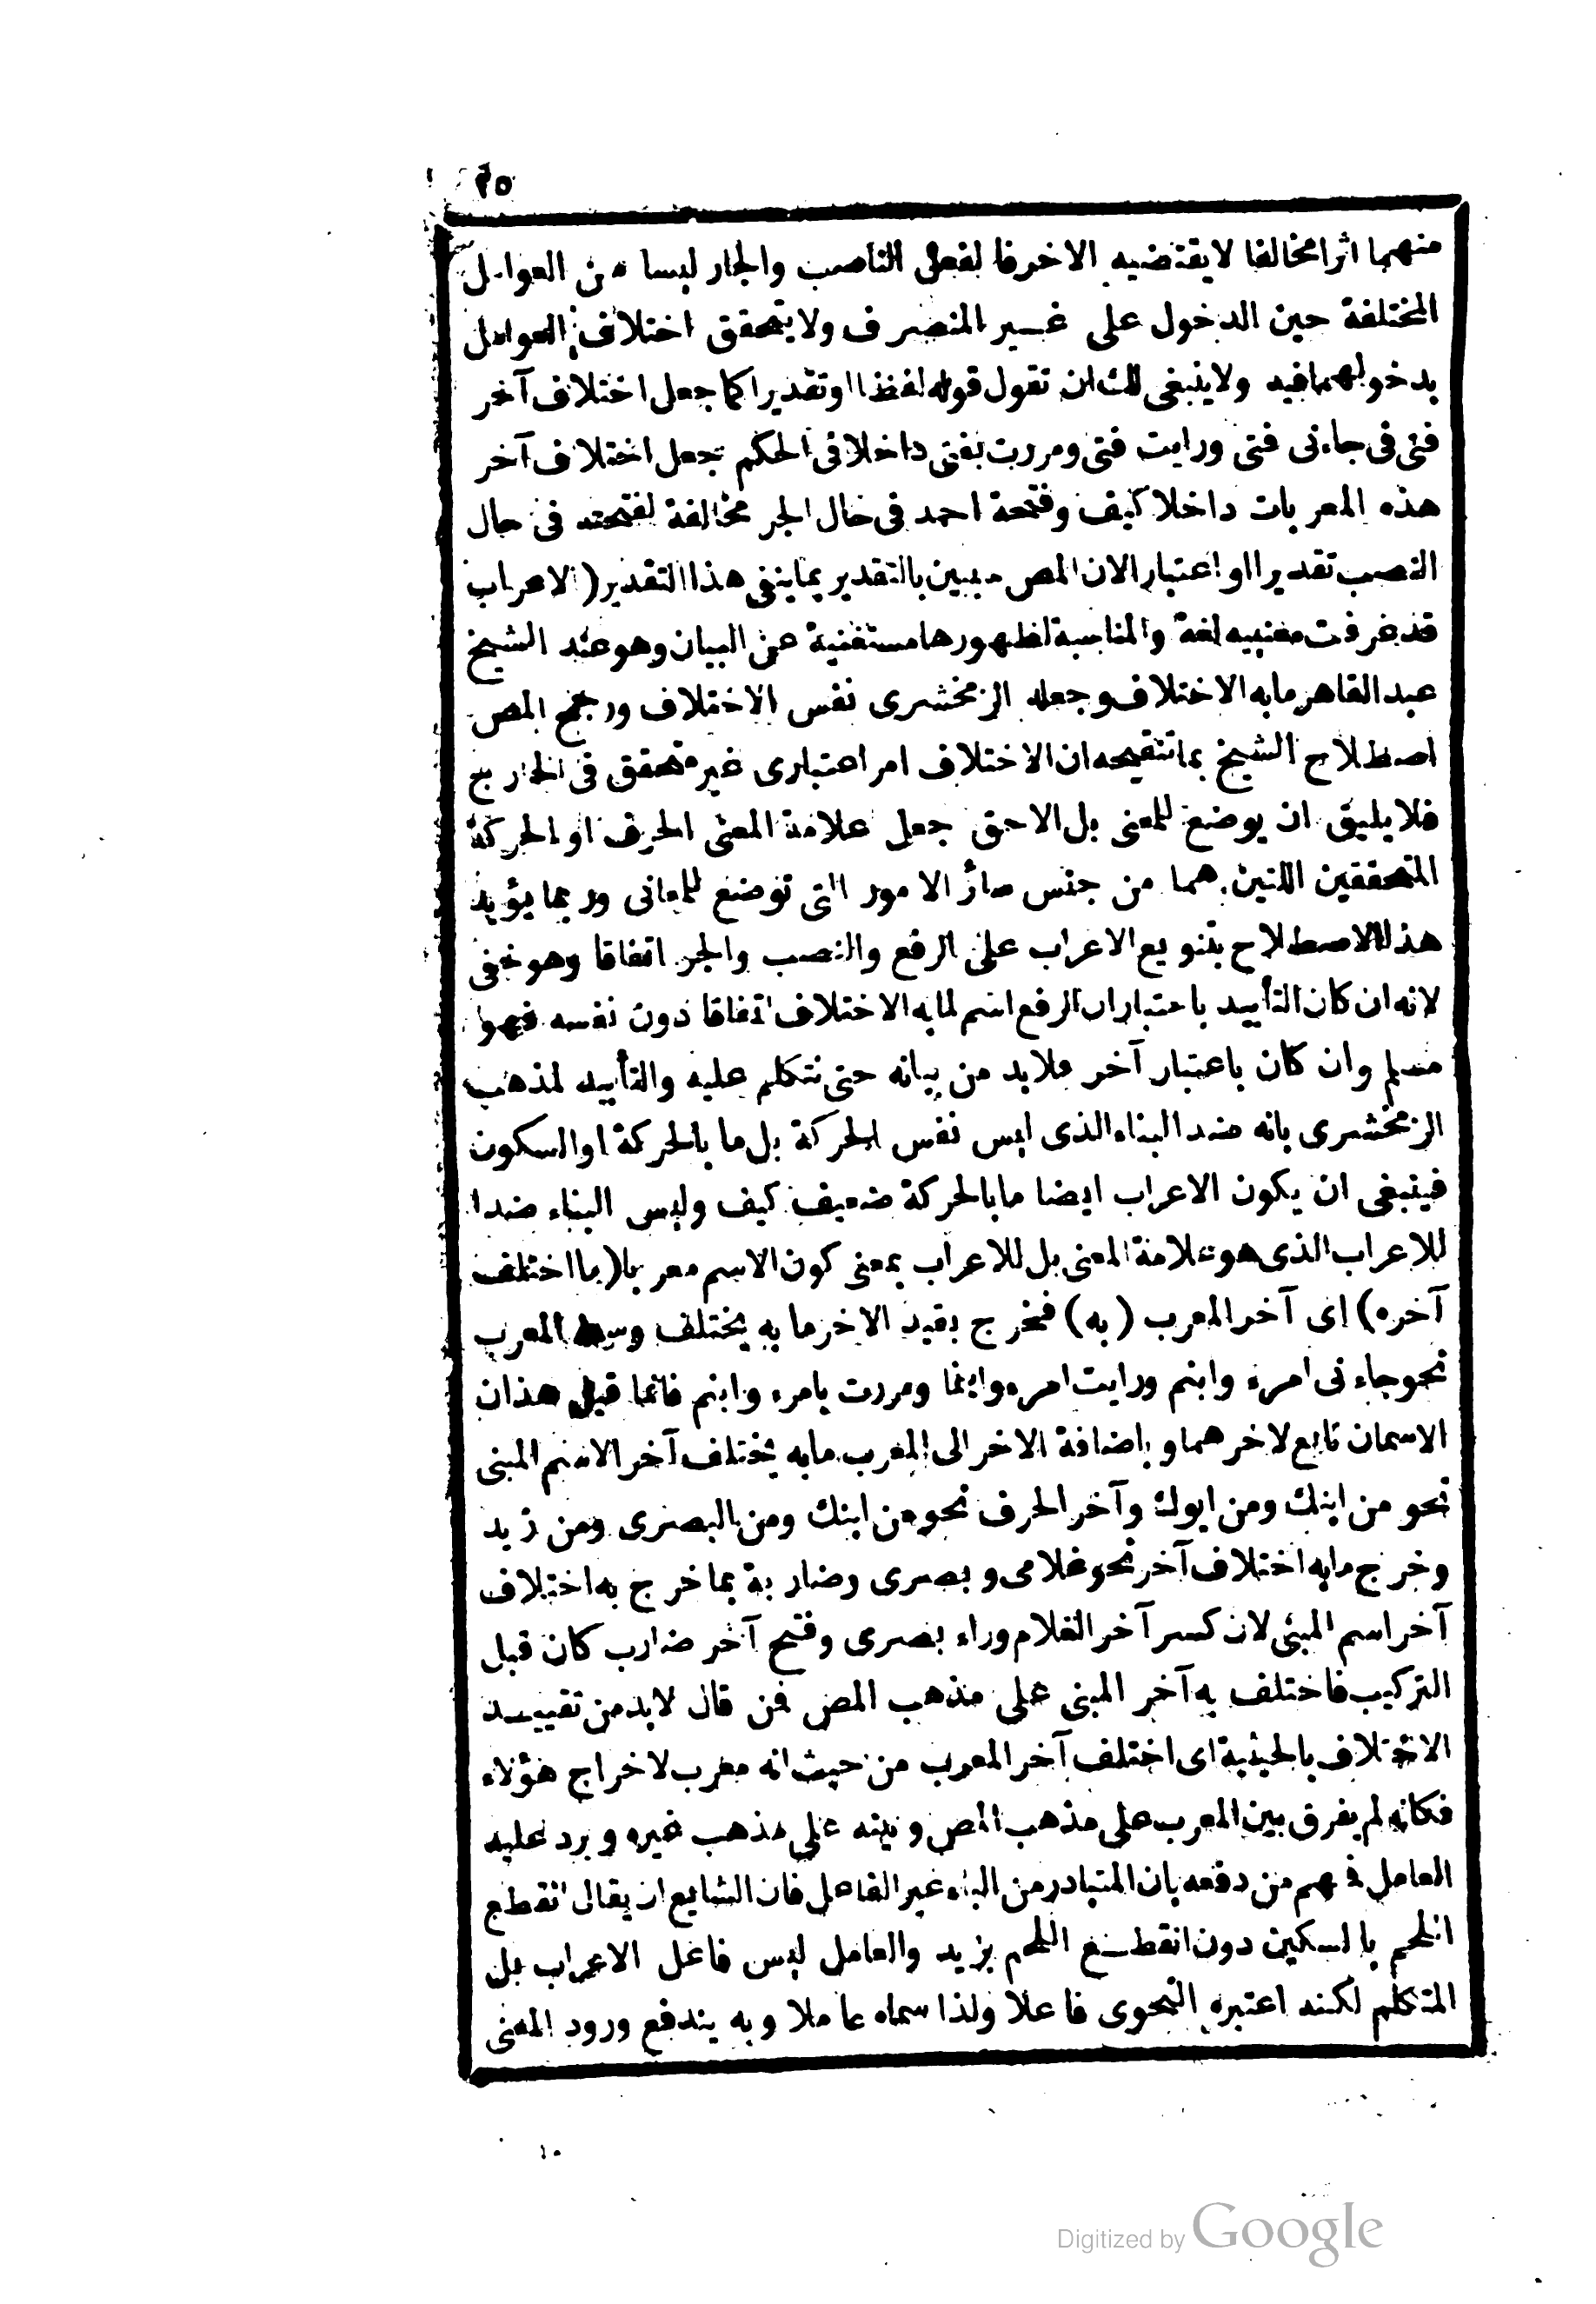 ٢٥
منهما اثرا مخالفا لا يقتضيه الاخر فا لفعل الناصب والجار ليسا من العوامل
المختلفة حين الدخول على غـــير المنصرف ولا يتحقق اختلاف العوامل
بدخولهما فيه ولا ينبغى لك ان تقول قوله لفظا او تقديرا كما جعل اختلاف آخر
فتى فى جاءنى فتى ورايت فتى ومررت بفتى داخلا فى الحكم جعل اختلاف آخر
هذه المعربات داخلا كيف وفتحة احمد فى حال الجر مخالفة لفتحته فى حال
النصب تقديرا او اعتبارا لان المص سيبين بالتقدير بما ينفى هذا التقدير (الاعراب
قد عرفت معنييه لغة والمناسبة لظهورها مستغنية عن البيان وهو عند الشيخ
عبد القاهر ما به الاختلاف وجعله الزمخشرى نفس الاختلاف ورجح المص
اصطلاح الشيخ بما تنقيحه ان الاختلاف امر اعتبارى غير متحقق فى الخارج
فلا يليق ان يوضع للمعنى بل الاحق جعل علامة المعنى الحرف او الحركة
المتحققين اللتين هما من جنس سائر الامور التى توضع للمعانى وربما يؤيد
هذا الاصطلاح بتنويع الاعراب على الرفع والنصب والجر اتفاقا وهو خفى
لانه ان كان التأييد باعتبار ان الرفع اسم لما به الاختلاف اتفاقا دون نفسه فهوا
مسلم وان كان باعتبار آخر فلا بد من بيانه حتى نتكلم عليه والتأييد لمذهب
الزمخشرى بانه ضد البناء الذى ليس نفس الحركة بل ما بالحركة او السكون
فينبغى ان يكون الاعراب ايضا ما بالحركة ضعيف كيف وليس البناء ضدا
للاعراب الذى هو علامة المعنى بل للاعراب بمعنى كون الاسم معربا (ما اختلف
آخره) اى آخر المعرب (به) فخرج بقيد الاخر ما به يختلف وسط المعرب
نحو جاءنى امرء وابنم ورايت امرء وابنما ومررت بامرء وابنم فانما قبل هذان
الاسمان تابع لاخرهما و باضافة الاخر الى المعرب ما به يختلف آخر الاسم المبنى
نحو من ابنك ومن ابوك وآخر الحرف نحو من ابنك ومن البصرى ومن زيد
وخرج ما به اختلاف آخر نحو غلامى و بصرى وضاربة بما خرج به اختلاف
آخر اسم المبنى لان كسر آخر الغلام وراء بصرى وفتح آخر ضارب كان قبل
التركيب فاختلف به آخر المبنى على مذهب المص فمن قال لابد من تقييـــد
الاختلاف بالحيثية اى اختلف آخر المعرب من حيث انه معرب لاخراج هؤلاء
فكانه لم يفرق بين المعرب على مذهب المص وبينه على مذهب غيره و يرد عليه
العامل فمنهم من دفعه بان المتبادر من الباء غير الفاعل فان الشايع ان يقال انقطع
اللحم بالسكين دون انقطـــع اللحم بزيد والعامل ليس فاعل الاعراب بل
المتكلم لكنه اعتبره النحوى فاعلا ولذا سماه عاملا وبه يندفع ورود المعنى
Digitized by Google